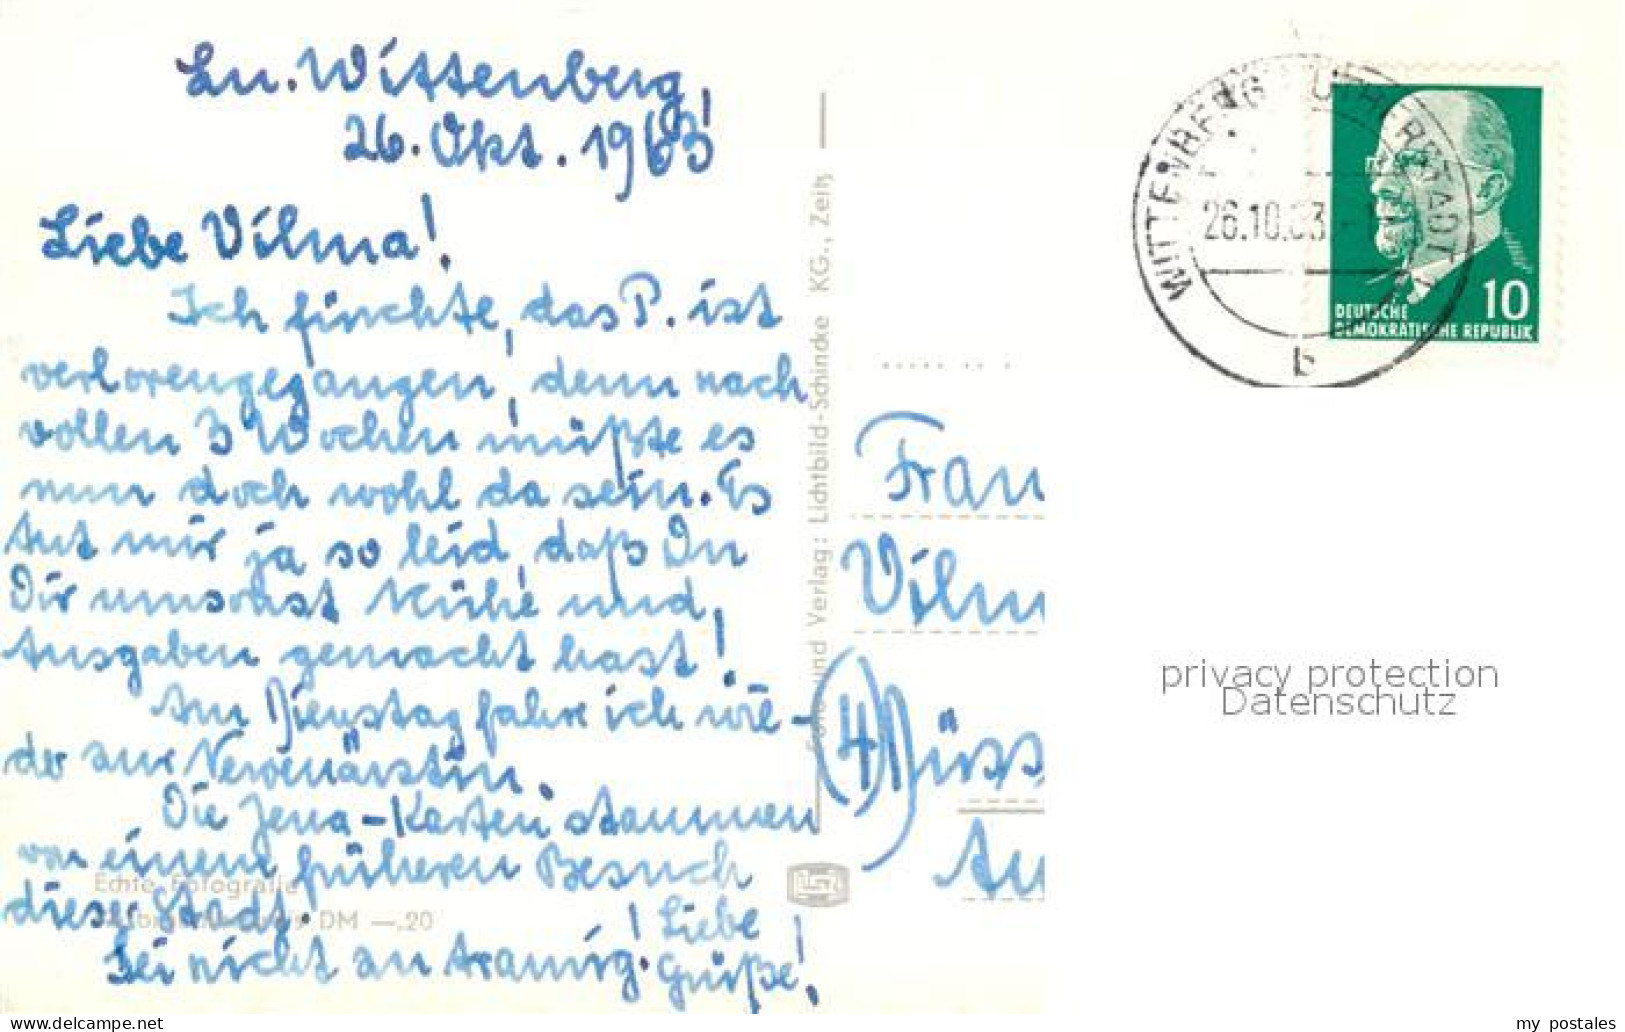 Lu. Wittenberg,
26. Okt. 1963
Liebe Vilma!
Ich fürchte, das P. ist
verlorengegangen, denn nach
vollen 3 Wochen müßte es
nun doch wohl da sein. Es
tut mir ja so leid, daß Du
Dir umsonst Mühe und
Ausgaben gemacht hast!
Am Dienstag fahre ich wie-
der zur Nervenärztin.
Die Jena-Karten stammen
von einem früheren Besuch
dieser Stadt.
Sei nicht zu traurig! Liebe
Grüße!
Echte Fotografie
DM —.20
und Verlag: Lichtbild-Schincke KG., Zeitz
WITTENBERG LUTHERSTADT
26.10.63
b
10
DEUTSCHE
DEMOKRATISCHE REPUBLIK
Frau
Vilm
(4) Düss
Au
privacy protection
Datenschutz
www.delcampe.net
my_postales